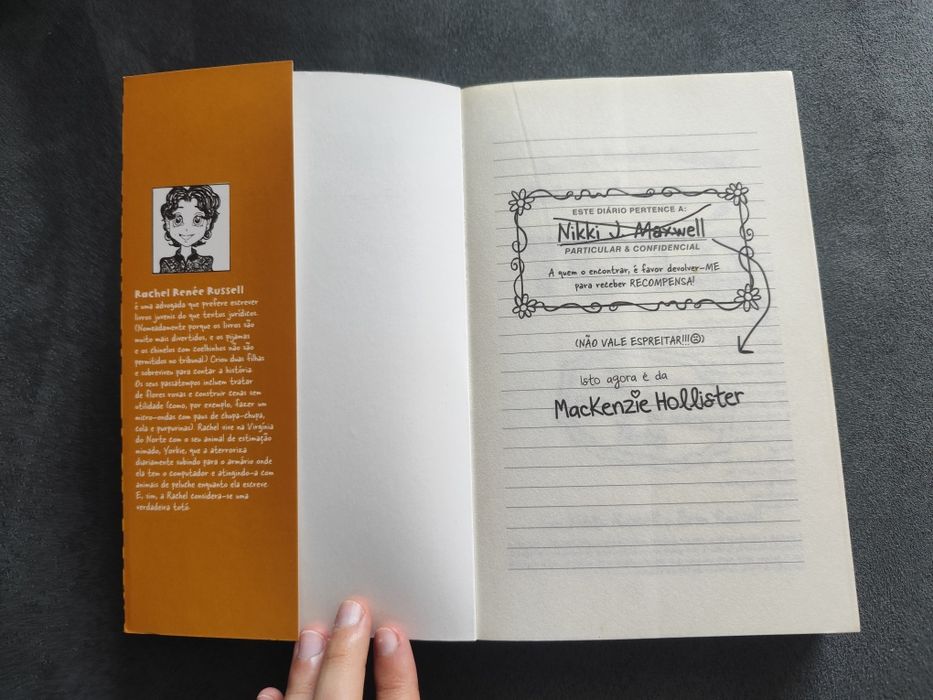 Rachel Renée Russell
é uma advogada que prefere escrever
livros juvenis do que textos jurídicos.
(Nomeadamente porque os livros são
muito mais divertidos, e os pijamas
e os chinelos com coelhinhos não são
permitidos no tribunal.) Criou duas filhas
e sobreviveu para contar a história.
Os seus passatempos incluem tratar
de flores roxas e construir cenas sem
utilidade (como, por exemplo, fazer um
micro-ondas com paus de chupa-chupa,
cola e purpurinas). Rachel vive na Virgínia
do Norte com o seu animal de estimação
mimado, Yorkie, que a aterroriza
diariamente subindo para o armário onde
ela tem o computador e atingindo-a com
animais de peluche enquanto ela escreve.
E, sim, a Rachel considera-se uma
verdadeira totó.
ESTE DIÁRIO PERTENCE A:
Nikki J. Maxwell
PARTICULAR & CONFIDENCIAL
A quem o encontrar, é favor devolver-ME
para receber RECOMPENSA!
(NÃO VALE ESPREITAR!!!☹)
Isto agora é da
MacKenzie Hollister